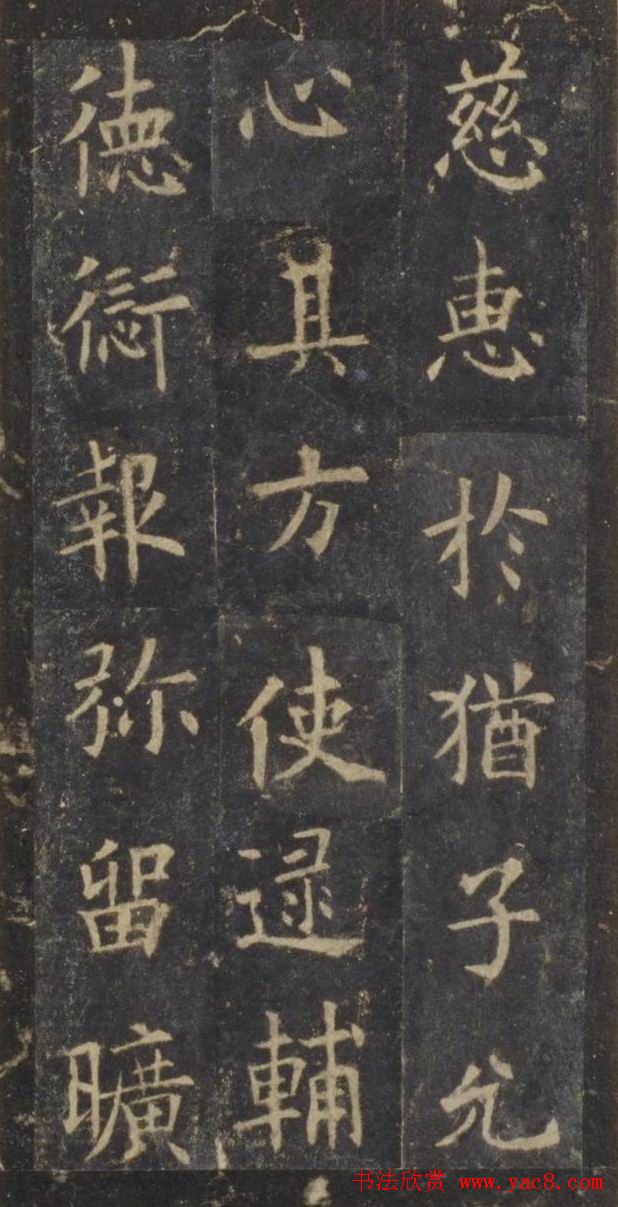 慈恵於猶子允
心具方使逯輔
徳愆報弥留曠
书法欣赏 www.yac8.com